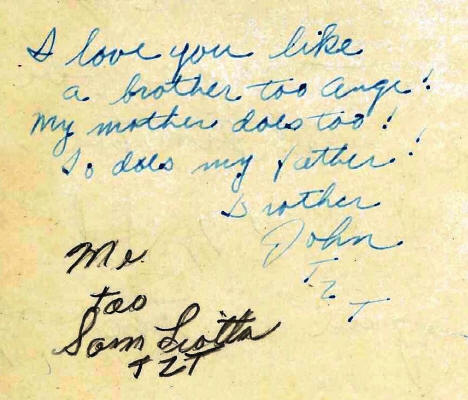 I love you like
a brother too Ange!
My mother does too!
So does my father!
Brother
John
TZT
Me
too
Sam Liotta
TZT